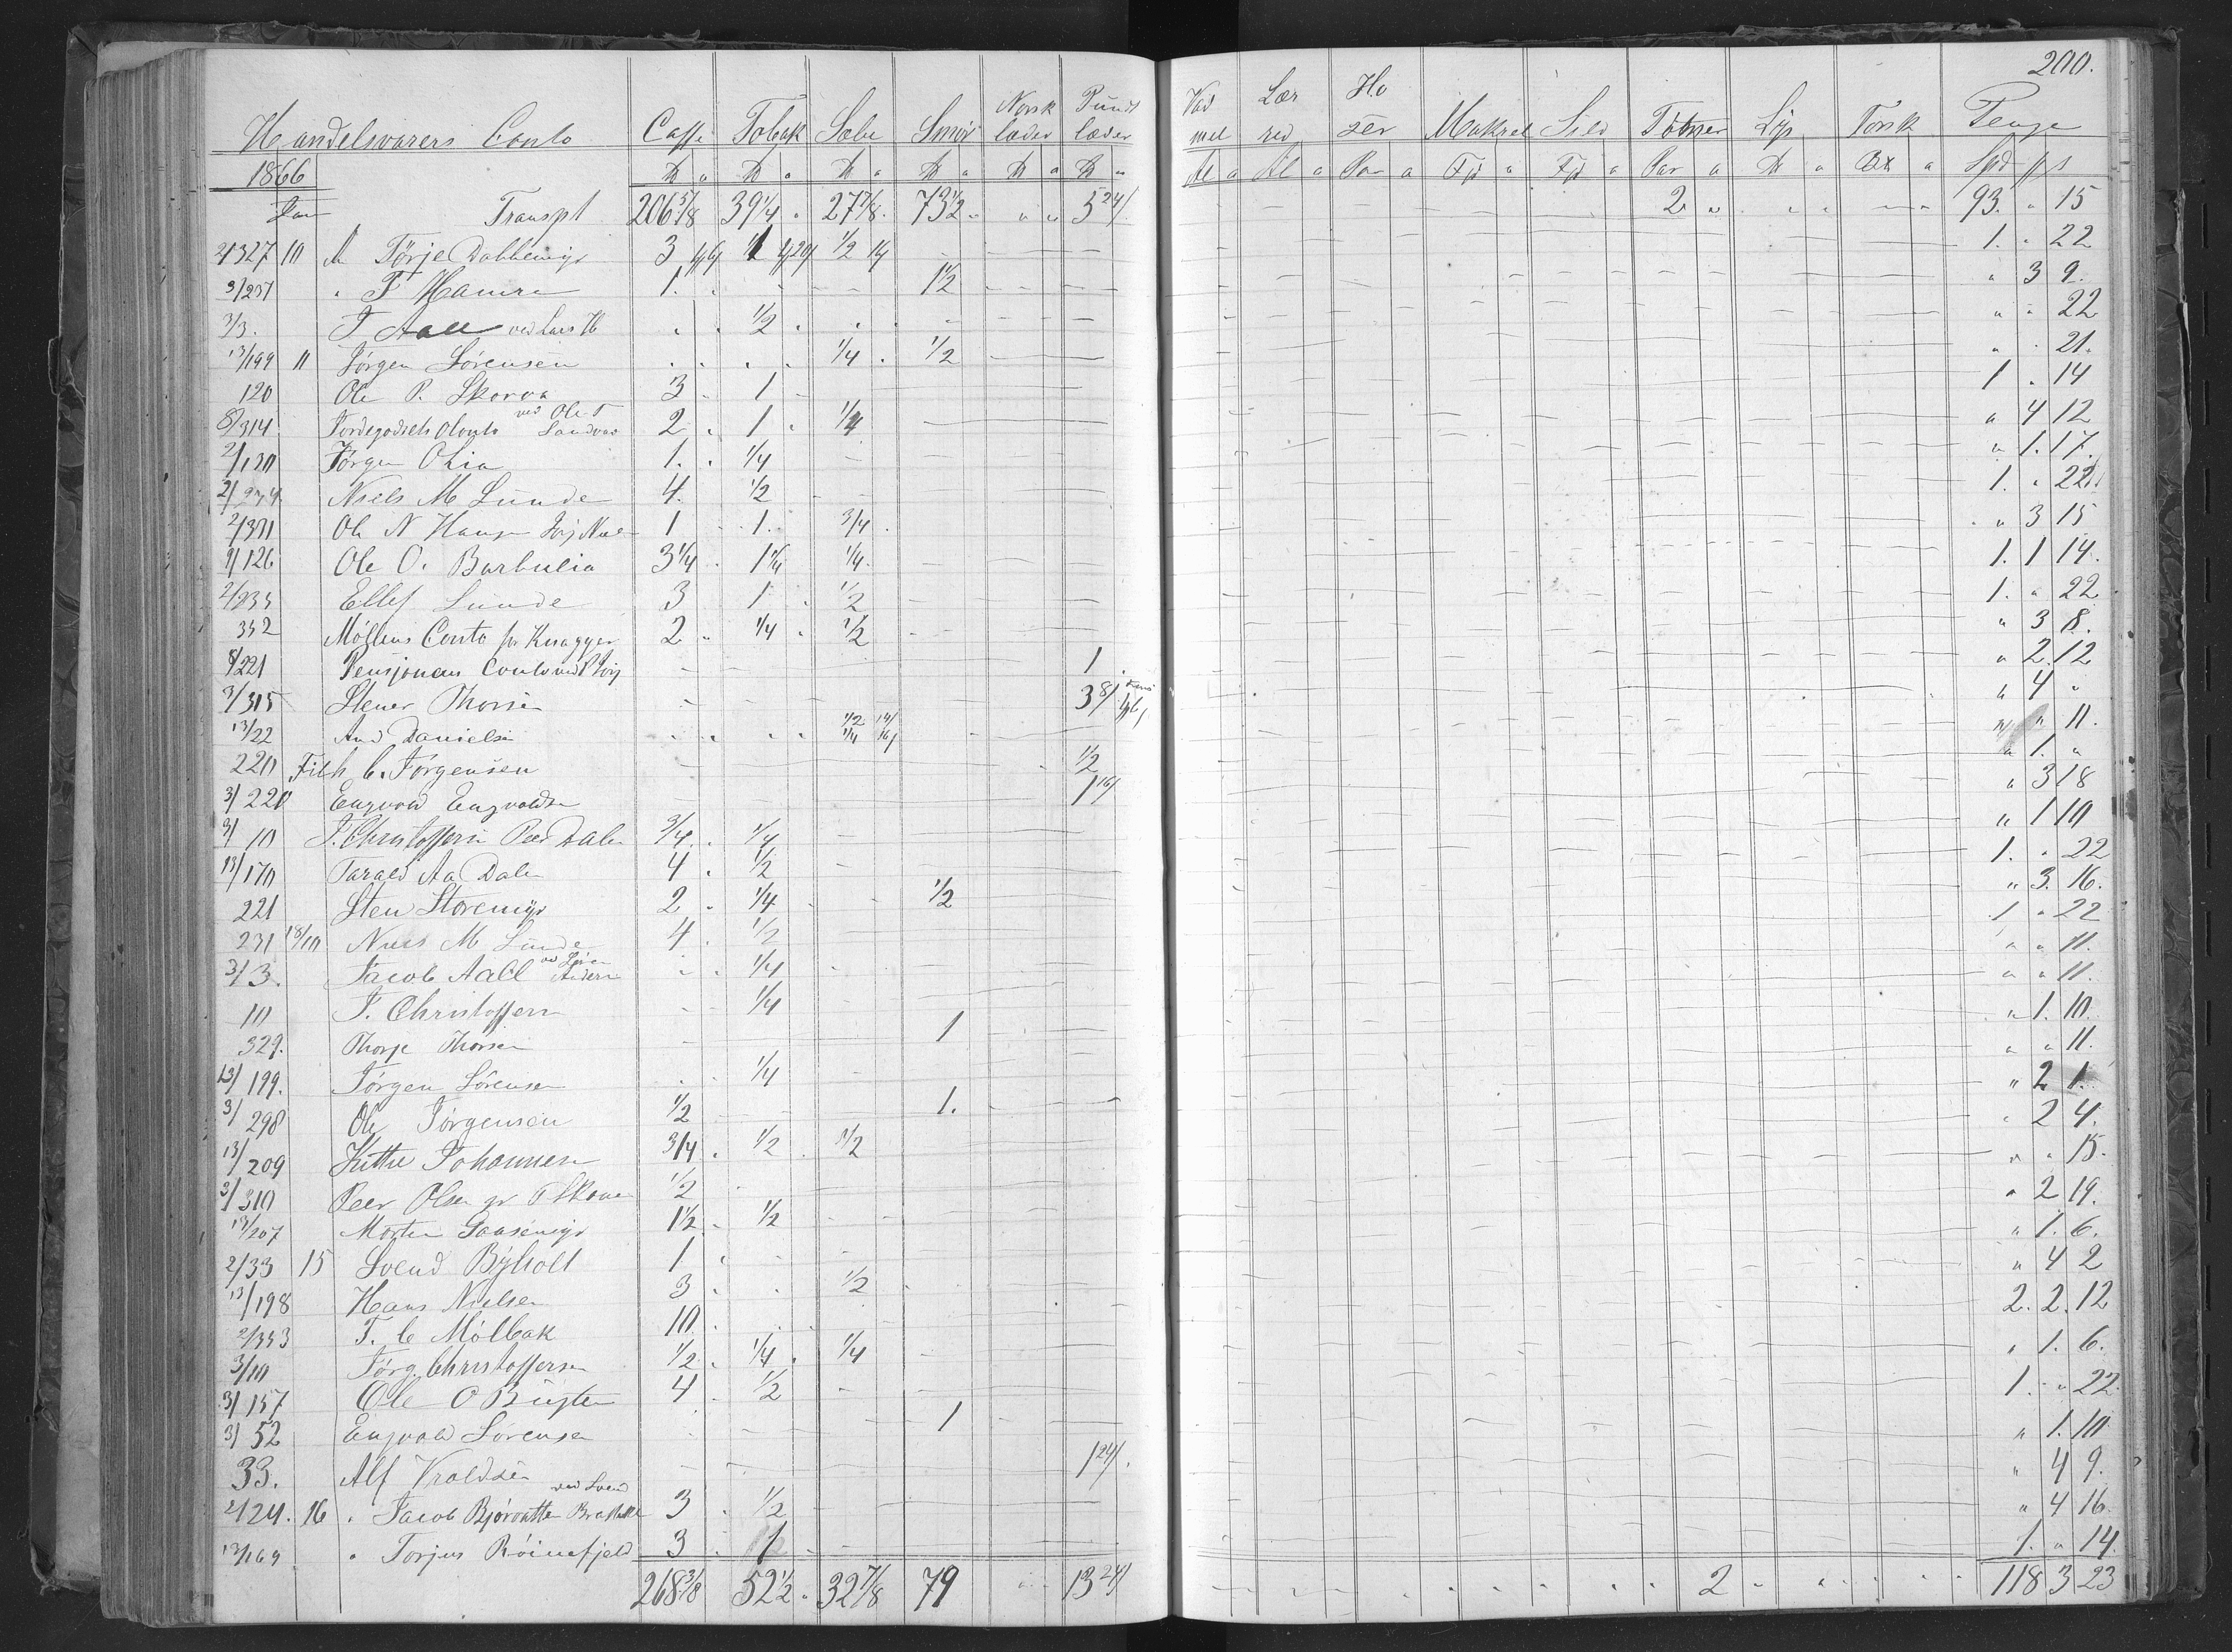 200.
Handelsvarers Conto Caffe Tobak Sæbe Smør Norsk læder Pund læder Vad mel Lær red Ho zer Makrel Sild Tøbner Lys Torsk Penge
1866 ℔ a ℔ a ℔ a ℔ a ℔ a ℔ a Al a Al a Par a Fjd a Fjd a Par a ℔ a a Spd ℔ s
Jan Transpt 206 5/8 39 1/4 27 7/8 73 1/2 " " 5 24/ 2 " 93. " 15
2/327 10 Tørje Dabbemyr 3 1/2 1. " 22
3/237 " T Hamre 1. 1/2 " 3 9.
3/3. J Aall ved Lars 1/2 " " 22
13/199 11 Jørgen Sørensen 1/4 1/2 " " 21.
120 Ole P. Skorva 3 1 1 " 14
8/314 Jordegodsets Conto ved Ole T Sandvas 2 1 1/4 " 4 12
2/130 Jørgen Olia 1. 1/4 " 1. 17.
2/234 Niels M Lunde 4. 1/2 1. " 22
2/301 Ole N Hauge 1 1. 3/4 " 3 15
9/126 Ole O. Barbulia 3 1/4 1 1/4 1/4 1. 1 14.
2/235 Ellef Lunde 3 1 1/2 1. " 22
352 Møllens Conto for Knagger 2 1/4 1/2 " 3 8.
8/221 Pensjonens Conto ved 1 " 2. 12
3/315 Stener Thorsen 3 8/ " 4 "
13/22 And Danielsen 1/2 14/ 1/4 16/ " 11.
220 Fifth C. Jørgensen 1/2 " 1. "
3/220 Engvold Engvoldsen 1 16/ " 3 18
3/10 J. Christoffersen Peer Dalen 3/4 1/4 " 1 10
13/170 Tarald Aa Dalen 4 1/2 1. " 22
221 Sten Storemyr 2 1/4 1/2 " 3. 16.
231 18/10 Niels M Lunde 4 1/2 1 " 22
3/3. Jacob Aall 1/4 " " 11.
10 J. Christoffersen 1/4 " " 11.
329. Thorje Thorsen 1 " 1. 10.
13/199. Jørgen Sørensen 1/4 " " 11.
3/298 Ole Jørgensen 1/2 1. " 2 1.
13/209 Kittil Johannesen 3/4 1/2 1/2 " 2 4.
3/310 Peer Olsen 1/2 " " 15.
13/207 Morten Gaasemyr 1 1/2 1/2 " 2 19.
2/33 15 Svend Bÿholt 1 " 1. 6.
13/198 Hans Nielsen 3 1/2 " 4 2
2/353 T. C Mólbak 10 2. 2. 12
3/10 Jørg. Christoffersen 1/2 1/4 1/4 " 1. 6.
3/157 Ole O Bugten 4 1/2 1. " 22
3/52 Engvald Sørensen 1 " 1. 10
33. Alf Vroldsen 1 24/. " 4 9.
2/24. 16 " Jacob Bjorvatten ved Svend 3 1/2 " 4 16
13/169 " Torjus Róinefjeld 3 1 1. " 14.
268 3/8 52 1/2 32 7/8 79 13 24/ 2 118 3 23